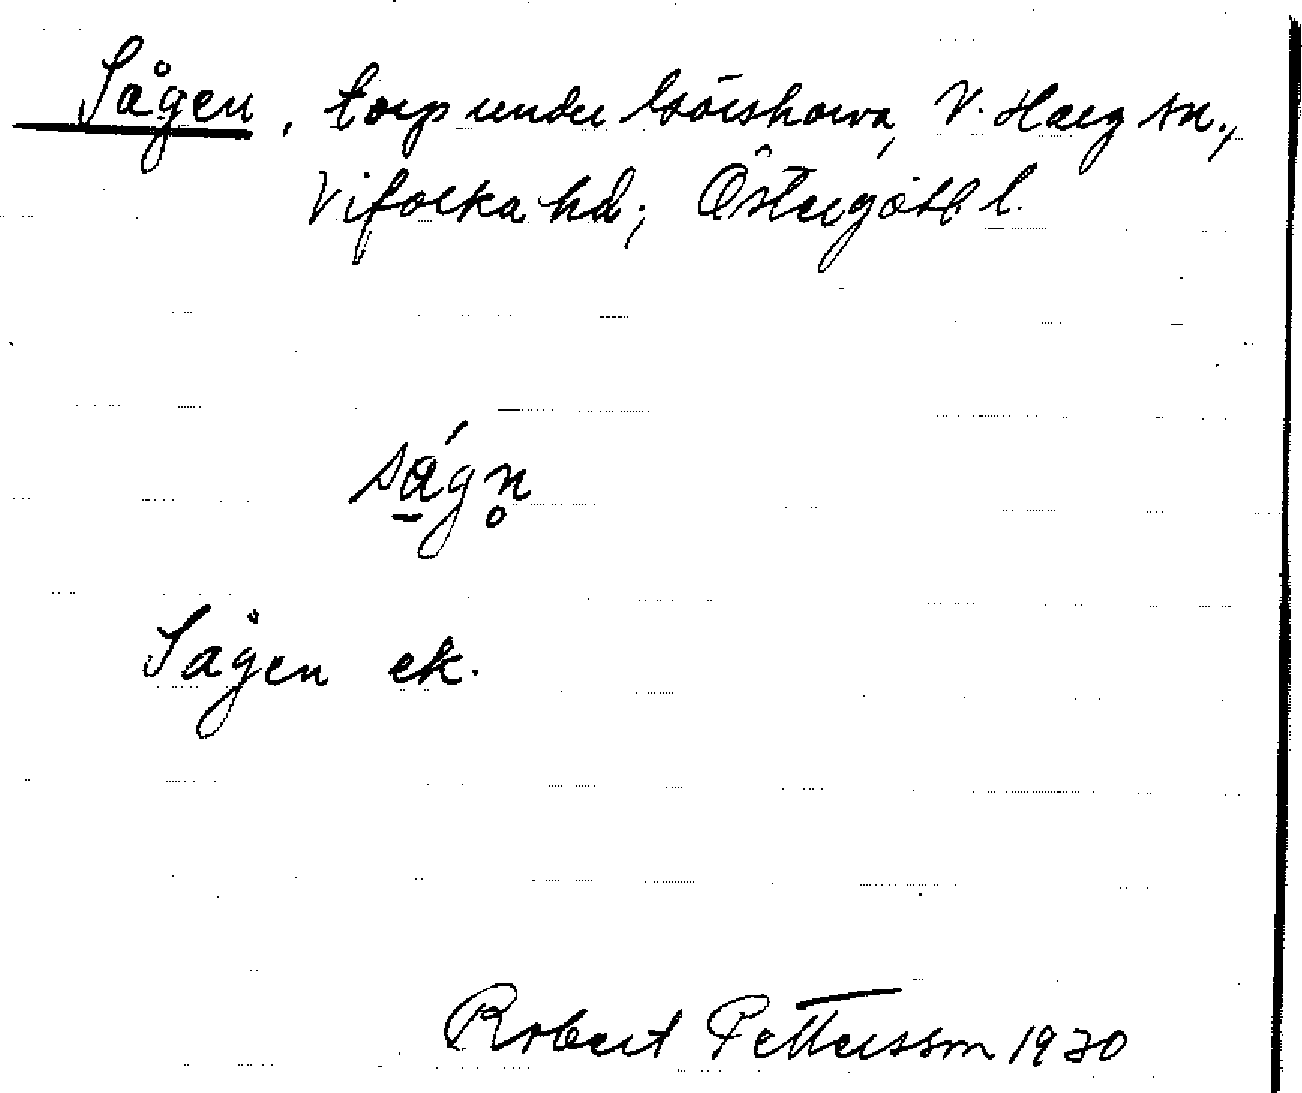 Sågen, torp under Görshorva, V. Harg sn.,
Vifolka hd; Östergötl l.
ságn̥
Sågen ek.
Robert Pettersson 1930